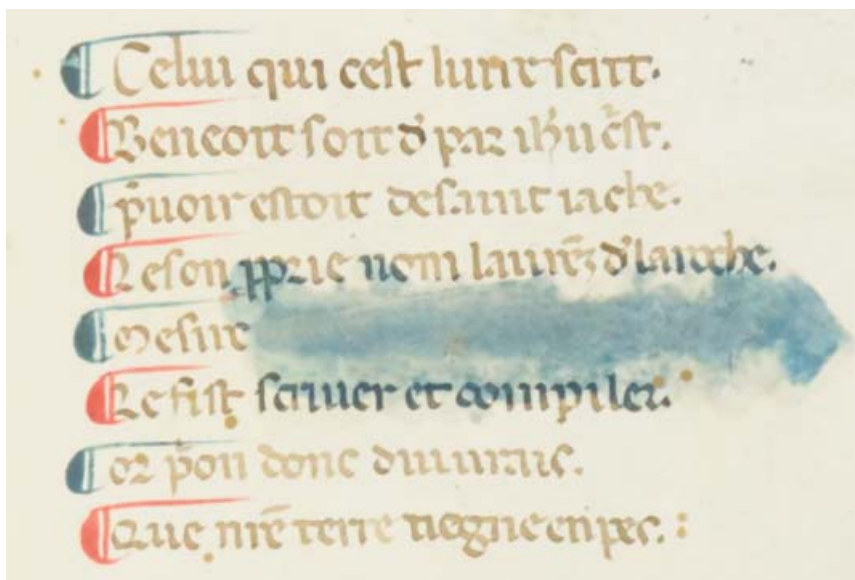 Celui qui cest liure scrit.
Beneoit soit d' par ih̄u c̄st.
p̄uoir estoit de saint iache.
Le son pprie nom laurēs d'la roche.
Mesire
Le fist scriuer et compiler.
Or p̄on donc diu
Que nr̄e terre tiegne en pes.